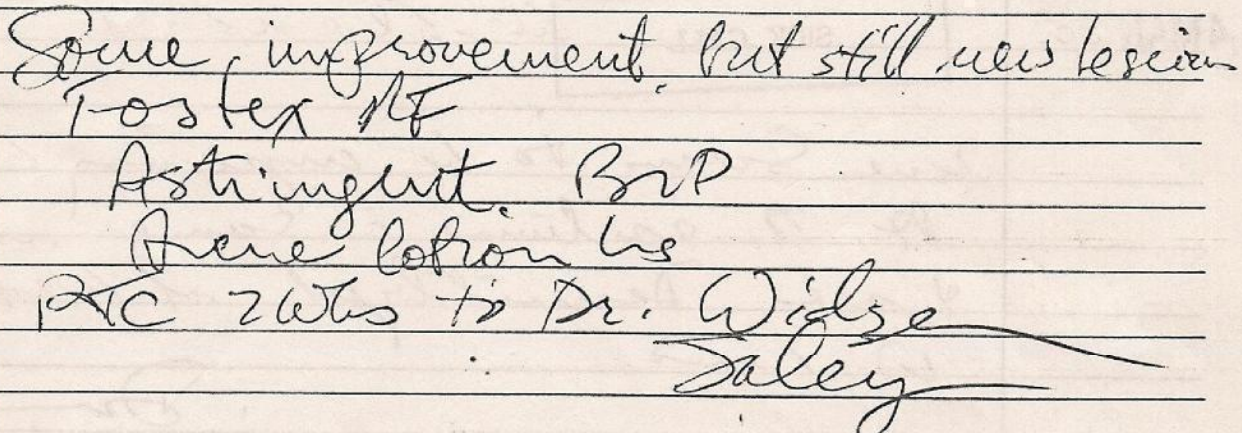 Some improvement, but still new lesions
Fostex
Astringent BID
Acne lotion hs
RTC 2 wks to Dr.